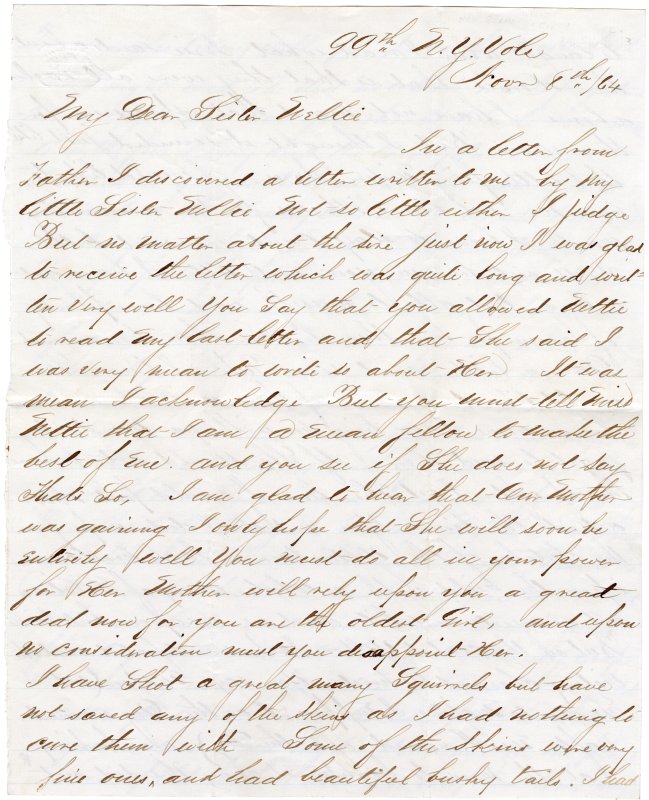 99th N.Y. Vols
Novr 8th /64
My Dear Sister Nellie
In a letter from
Father I discovered a letter written to me by my
little Sister Nellie Not so little either I judge
But no matter about the size just now I was glad
to receive the letter which was quite long and writ-
ten very well You Say that you allowed Nettie
to read my last letter and that She said I
was very mean to write so about Her It was
mean I acknowledge But you must tell Miss
Nettie that I am a mean fellow to make the
best of me. and you see if She does not Say
Thats So, I am glad to hear that Our Mother
was gaining I only hope that She will soon be
entirely well You must do all in your power
for Her Mother will rely upon you a great
deal now for you are the oldest Girl, and upon
no consideration must you disappoint Her.
I have Shot a great many Squirrels but have
not saved any of the Skins as I had nothing to
cure them with Some of the Skins were very
fine ones, and had beautiful bushy tails. I had